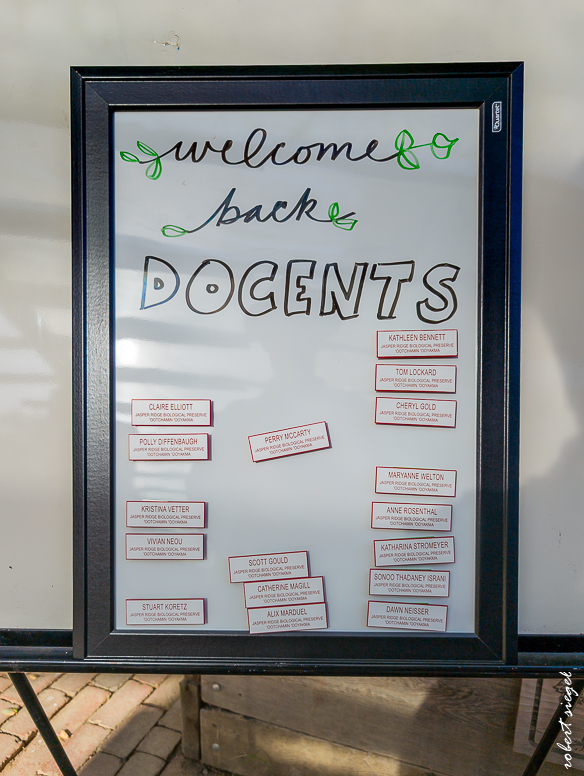 Quartet
welcome
back
DOCENTS
KATHLEEN BENNETT
JASPER RIDGE BIOLOGICAL PRESERVE
'OOTCHAMIN 'OOYAKMA
TOM LOCKARD
JASPER RIDGE BIOLOGICAL PRESERVE
'OOTCHAMIN 'OOYAKMA
CHERYL GOLD
JASPER RIDGE BIOLOGICAL PRESERVE
'OOTCHAMIN 'OOYAKMA
CLAIRE ELLIOTT
JASPER RIDGE BIOLOGICAL PRESERVE
'OOTCHAMIN 'OOYAKMA
POLLY DIFFENBAUGH
JASPER RIDGE BIOLOGICAL PRESERVE
'OOTCHAMIN 'OOYAKMA
PERRY MCCARTY
JASPER RIDGE BIOLOGICAL PRESERVE
'OOTCHAMIN 'OOYAKMA
MARYANNE WELTON
JASPER RIDGE BIOLOGICAL PRESERVE
'OOTCHAMIN 'OOYAKMA
KRISTINA VETTER
JASPER RIDGE BIOLOGICAL PRESERVE
'OOTCHAMIN 'OOYAKMA
ANNE ROSENTHAL
JASPER RIDGE BIOLOGICAL PRESERVE
'OOTCHAMIN 'OOYAKMA
VIVIAN NEOU
JASPER RIDGE BIOLOGICAL PRESERVE
'OOTCHAMIN 'OOYAKMA
KATHARINA STROMEYER
JASPER RIDGE BIOLOGICAL PRESERVE
'OOTCHAMIN 'OOYAKMA
SCOTT GOULD
JASPER RIDGE BIOLOGICAL PRESERVE
'OOTCHAMIN 'OOYAKMA
SONOO THADANEY ISRANI
JASPER RIDGE BIOLOGICAL PRESERVE
'OOTCHAMIN 'OOYAKMA
CATHERINE MAGILL
JASPER RIDGE BIOLOGICAL PRESERVE
'OOTCHAMIN 'OOYAKMA
STUART KORETZ
JASPER RIDGE BIOLOGICAL PRESERVE
'OOTCHAMIN 'OOYAKMA
ALIX MARDUEL
JASPER RIDGE BIOLOGICAL PRESERVE
'OOTCHAMIN 'OOYAKMA
DAWN NEISSER
JASPER RIDGE BIOLOGICAL PRESERVE
'OOTCHAMIN 'OOYAKMA
robert siegel